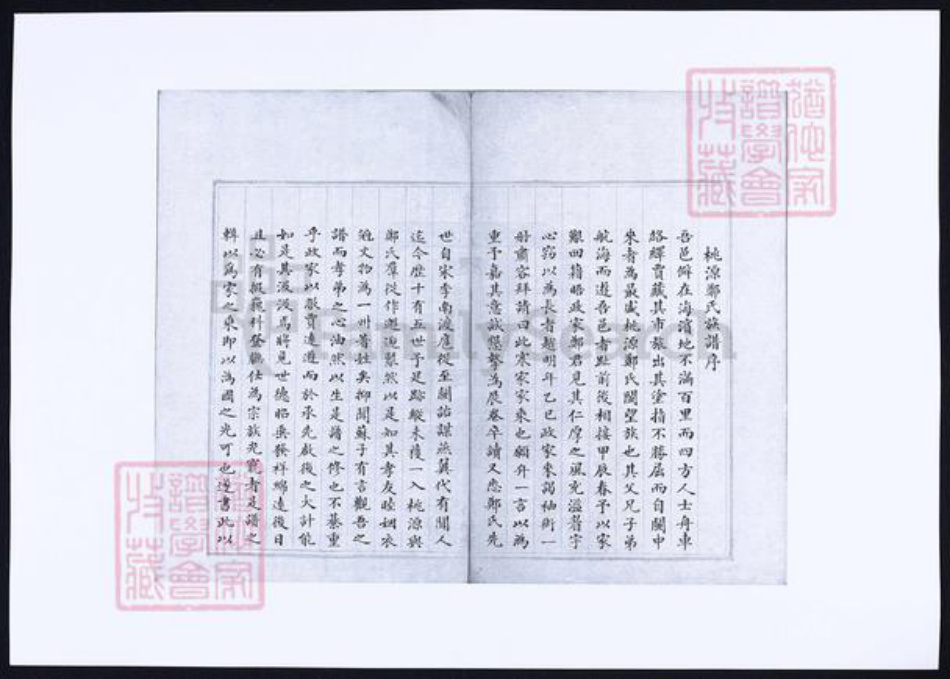 桃源鄭氏族譜序
吾邑僻在海濱地不滿百里而四方人士舟車
絡繹賈藏其市旅出其塗指不勝屈而自閩中
來者為最盛桃源鄭氏閩望族也其父兄子弟
航海而遊吾邑者趾前後相接甲辰春予以家
艱回籍晤政家鄭君見其仁厚之風充溢眉宇
心竊以為長者越明年乙巳政家來謁袖術一
冊肅容拜請曰此宋家家乘也願弁一言以為
重予嘉其意誠懇摯為展卷卒讀又悉鄭氏先
世自宋季南渡扈從至閩詒謀燕翼代有聞人
迄今歷十有五世予足跡縱未獲一入桃源與
鄭氏羣從作遊然以是知其孝友睦姻衣
冠文物為一州著姓矣抑聞蘇子有言觀吾之
譜而孝弟之心油然以生是譜之修也不綦重
乎政家以服賈遠遊而於承先啟後之大計能
如是其汲汲焉將見世德昭垂發祥綿遠後日
且必有掇巍科登膴仕為宗族光寵者是譜之
輯以為家之乘即以為國之光可也遂書此以
猶他家
譜學會
收藏
猶他家
譜學會
收藏
FamilySearch